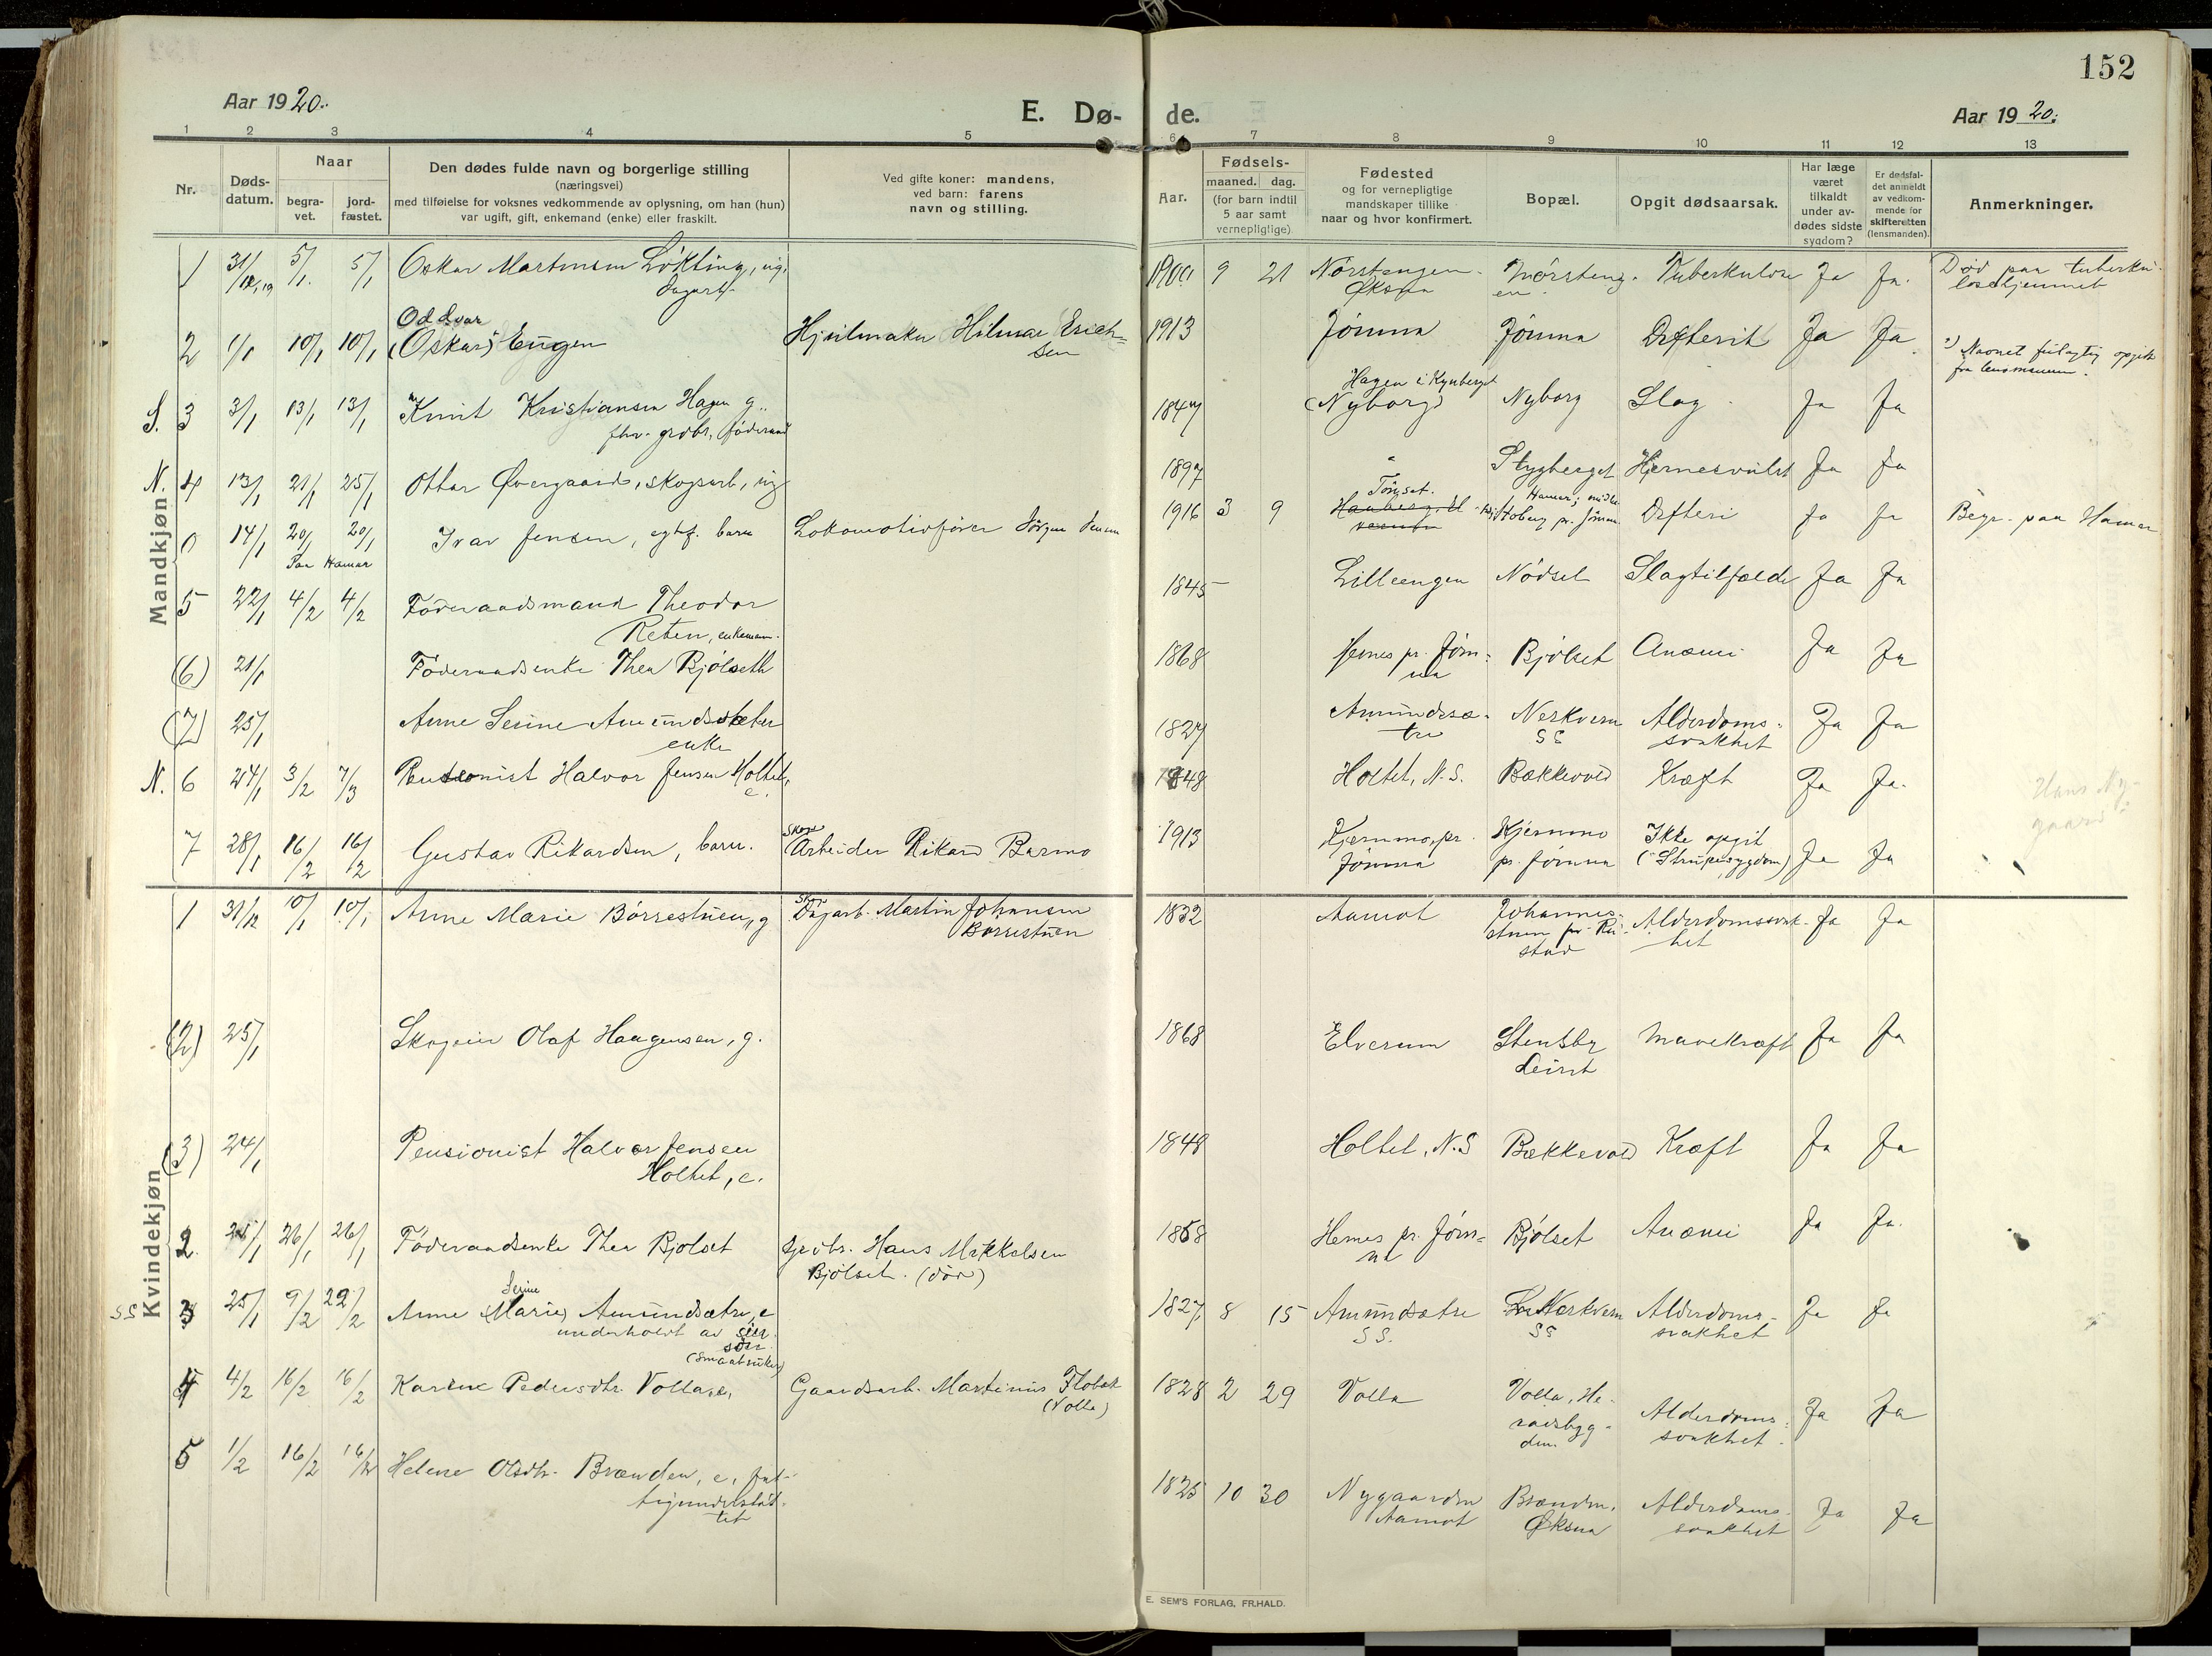 152
Aar 1920.
E. Dø-
de.
Aar 1920.
1 2 3 4 5 6 7 8 9 10 11 12 13
Nr.
Døds-
datum.
Naar
begra-
vet.
jord-
fæstet.
Den dødes fulde navn og borgerlige stilling
(næringsvei)
med tilføielse for voksnes vedkommende av oplysning, om han (hun)
var ugift, gift, enkemand (enke) eller fraskilt.
Ved gifte koner: mandens,
ved barn: farens
navn og stilling.
Aar.
Fødsels-
maaned. dag.
(for barn indtil
5 aar samt
vernepligtige)
Fødested
og for vernepligtige
mandskaper tillike
naar og hvor konfirmert.
Bopæl.
Opgit dødsaarsak.
Har læge
været
tilkaldt
under av-
dødes sidste
sygdom?
Er dødsfal-
det anmeldt
av vedkom-
mende for
skifteretten
(lensmanden).
Anmerkninger.
Mandkjøn
1 31/12,19 5/1. 5/1 Oskar Martinsen Løkting, ug. 1900 9 21 Nørstengen Nørsteng- Tuberkulose Ja Ja. Død paa tuberku-
Dagarb. Øksna en. losehjemmet
Oddvar
2 1/1 10/1 10/1 (Oskar) Eugen Hjulmaker Hilmar Erich- 1913 Jømna Jømna Difterit Ja Ja
sen Navnet feilagtig opgit
fra lensmannen.
Hagen i Kynberget
S. 3 3/1 13/1 13/1 Knut Kristiansen Hagen g. 1847 (Nyborg) Nyborg Slag Ja Ja
fhv. grdbr., føderaad
N. 4 13/1 21/1 25/1 Ottar Øvergaard, skogsarb., ug 1897 " Stygberget Hjernesvulst Ja Ja
Tønset. Hamar;
0 14/1 20/1 20/1 Ivar Jensen, egtef. barn Lokomotivfører Jørgen Jensen 1916 3 9 Stoberg pr. Jømna Difteri Ja Ja Begr. paa Hamar
Paa Hamar
5 22/1 4/2 4/2 Føderaadsmand Theodor 1845 Lilleengen Nødset Slagtilfælde Ja Ja
Reten, enkemann.
(6) 21/1 Føderaadsenke Thea Bjølseth 1868 Hernes pr. Jøm- Bjølset Anæmi Ja Ja
na
(7) 25/1 Anne Serine Amundsæter 1827 Amundsæ- Neskvern Alderdoms- Ja Ja
enke tre SS svakhet
N. 6 24/1 3/2 7/3 Pensionist Halvor Jensen Holtet, 1848 Holtet, N.S. Bækkevold Kræft Ja Ja.
e.
Hans Ny-
gaard?
Skogs
7 28/1 16/2 16/2 Gustav Rikardsen, barn. Arbeider Rikard Barmo 1913 Kjernmo, pr. Kjernmo Ikke opgit Ja Ja
Jømna pr. Jømna (Strupesygdom)
Kvindekjøn
Skogs
1 31/12 10/1 10/1 Anne Marie Børrestuen, g Dagarb. Martin Johansen 1832 Aamot Johannes- Alderdomssvak- Ja Ja
Børrestuen stuen pr. Ru- het
stad
(2) 25/1 Skogeier Olaf Haagensen, g. 1868 Elverum Stensby Mavekræft Ja Ja
Leiret
(3) 24/1 Pensionist Halvor Jensen 1848 Holtet, N.S Bækkevold Kræft Ja Ja
Holtet, e.
2. 21/1 26/1 26/1 Føderaadsenke Thea Bjølset Grdbr. Hans Mikkelsen 1868 Hernes pr. Jøm- Bjølset Anæmi Ja Ja.
Bjølset. (død) na
Serine
SS 3 25/1 9/2 22/2 Anne (Marie) Amundsætre, e 1827, 8 15 Amundsætre Neskvern Alderdoms- Ja Ja
underholdt av sin SS. SS svakhet
søn
(smaabruker)
4 4/2 16/2 16/2 Karine Pedersdtr. Volla, e, Gaardsarb. Martinus Flobet 1828 2 29 Volla Volla, He- Alderdoms- Ja Ja
(Volla) radsbyg- svakhet.
den.
5 1/2 16/2 16/2 Helene Olsdtr. Brænden, e, fat- 1825 10 30 Nygaarden Brænden, Alderdoms- Ja Ja
tigunderstøt- Aamot Øksna svakhet
tet
E. SEM'S FORLAG, FR.HALD.